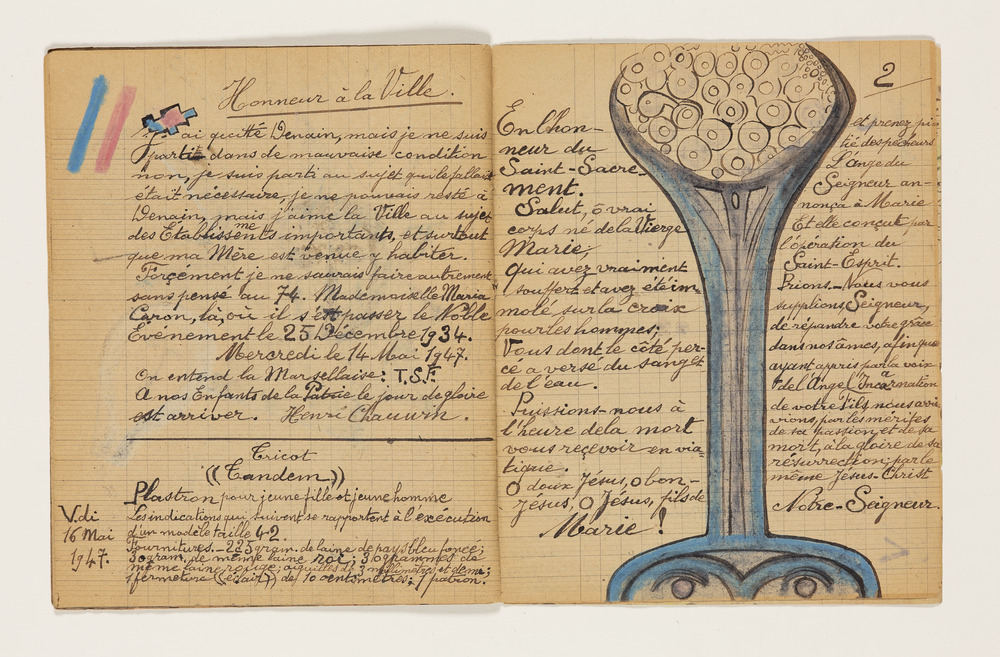 Honneur à la Ville.
J'ai quitté Denain, mais je ne suis
partit dans de mauvaise condition
non, je suis parti au sujet qu'ile fallait
était nécessaire, je ne pouvais resté à
Denain, mais j'aime la Ville au sujet
des Etablissements importants, et surtout
que ma Mère est venue y habiter.
Forçément je ne saurais faire autrement
sans pensé au 74. Mademoiselle Maria
Caron, là, où il s'est passer le Noble
Evénement le 25 Décembre 1934.
Mercredi le 14 Mai 1947.
On entend la Marsellaise: T.S.F.
A nos Enfants de la Patrie le jour de gloire
est arriver. Henri
Tricot
((Tandem))
Plastron pour jeune fille et jeune homme
V.di
16 Mai
1947.
Les indications qui suivent se rapportent à l'exécution
d'un modèle taille 42.
Fournitures. - 225 gram. de laine de pays bleu foncé;
30 gram. de même laine noi; 30 grammes de
même laine rouge; aiguilles de 3 millimètres et demi;
1 fermeture (éclair) de 10 centomètres; 1 patron.
2
En l'hon-
neur du
Saint-Sacre-
ment.
Salut, ô vrai
corps né de la Vierge
Marie;
Qui avez vraiment
souffert et avez été im-
molé sur la croix
pour les hommes;
Vous dont le côté per-
cé a versé du sang et
de l'eau.
Puissions-nous à
l'heure de la mort
vous reçevoir en via-
tique.
O doux Jésus, o bon-
Jésus, O Jésus, fils de
Marie!
et prenez pi-
tié des pécheurs
L'ange du
Seigneur an-
nonça à Marie
Et elle conçut par
l'opération du
Saint-Esprit.
Prions.-Nous vous
supplions, Seigneur,
de répandre votre grâce
dans nos âmes, afin que
ayant appris par la voix
de l'Angel Incarnation
de votre fils nous arri-
vions, par les mérites
de sa passion et de sa
mort, à la gloire de sa
résurrection; par le
même Jésus-Christ
Notre-Seigneur.